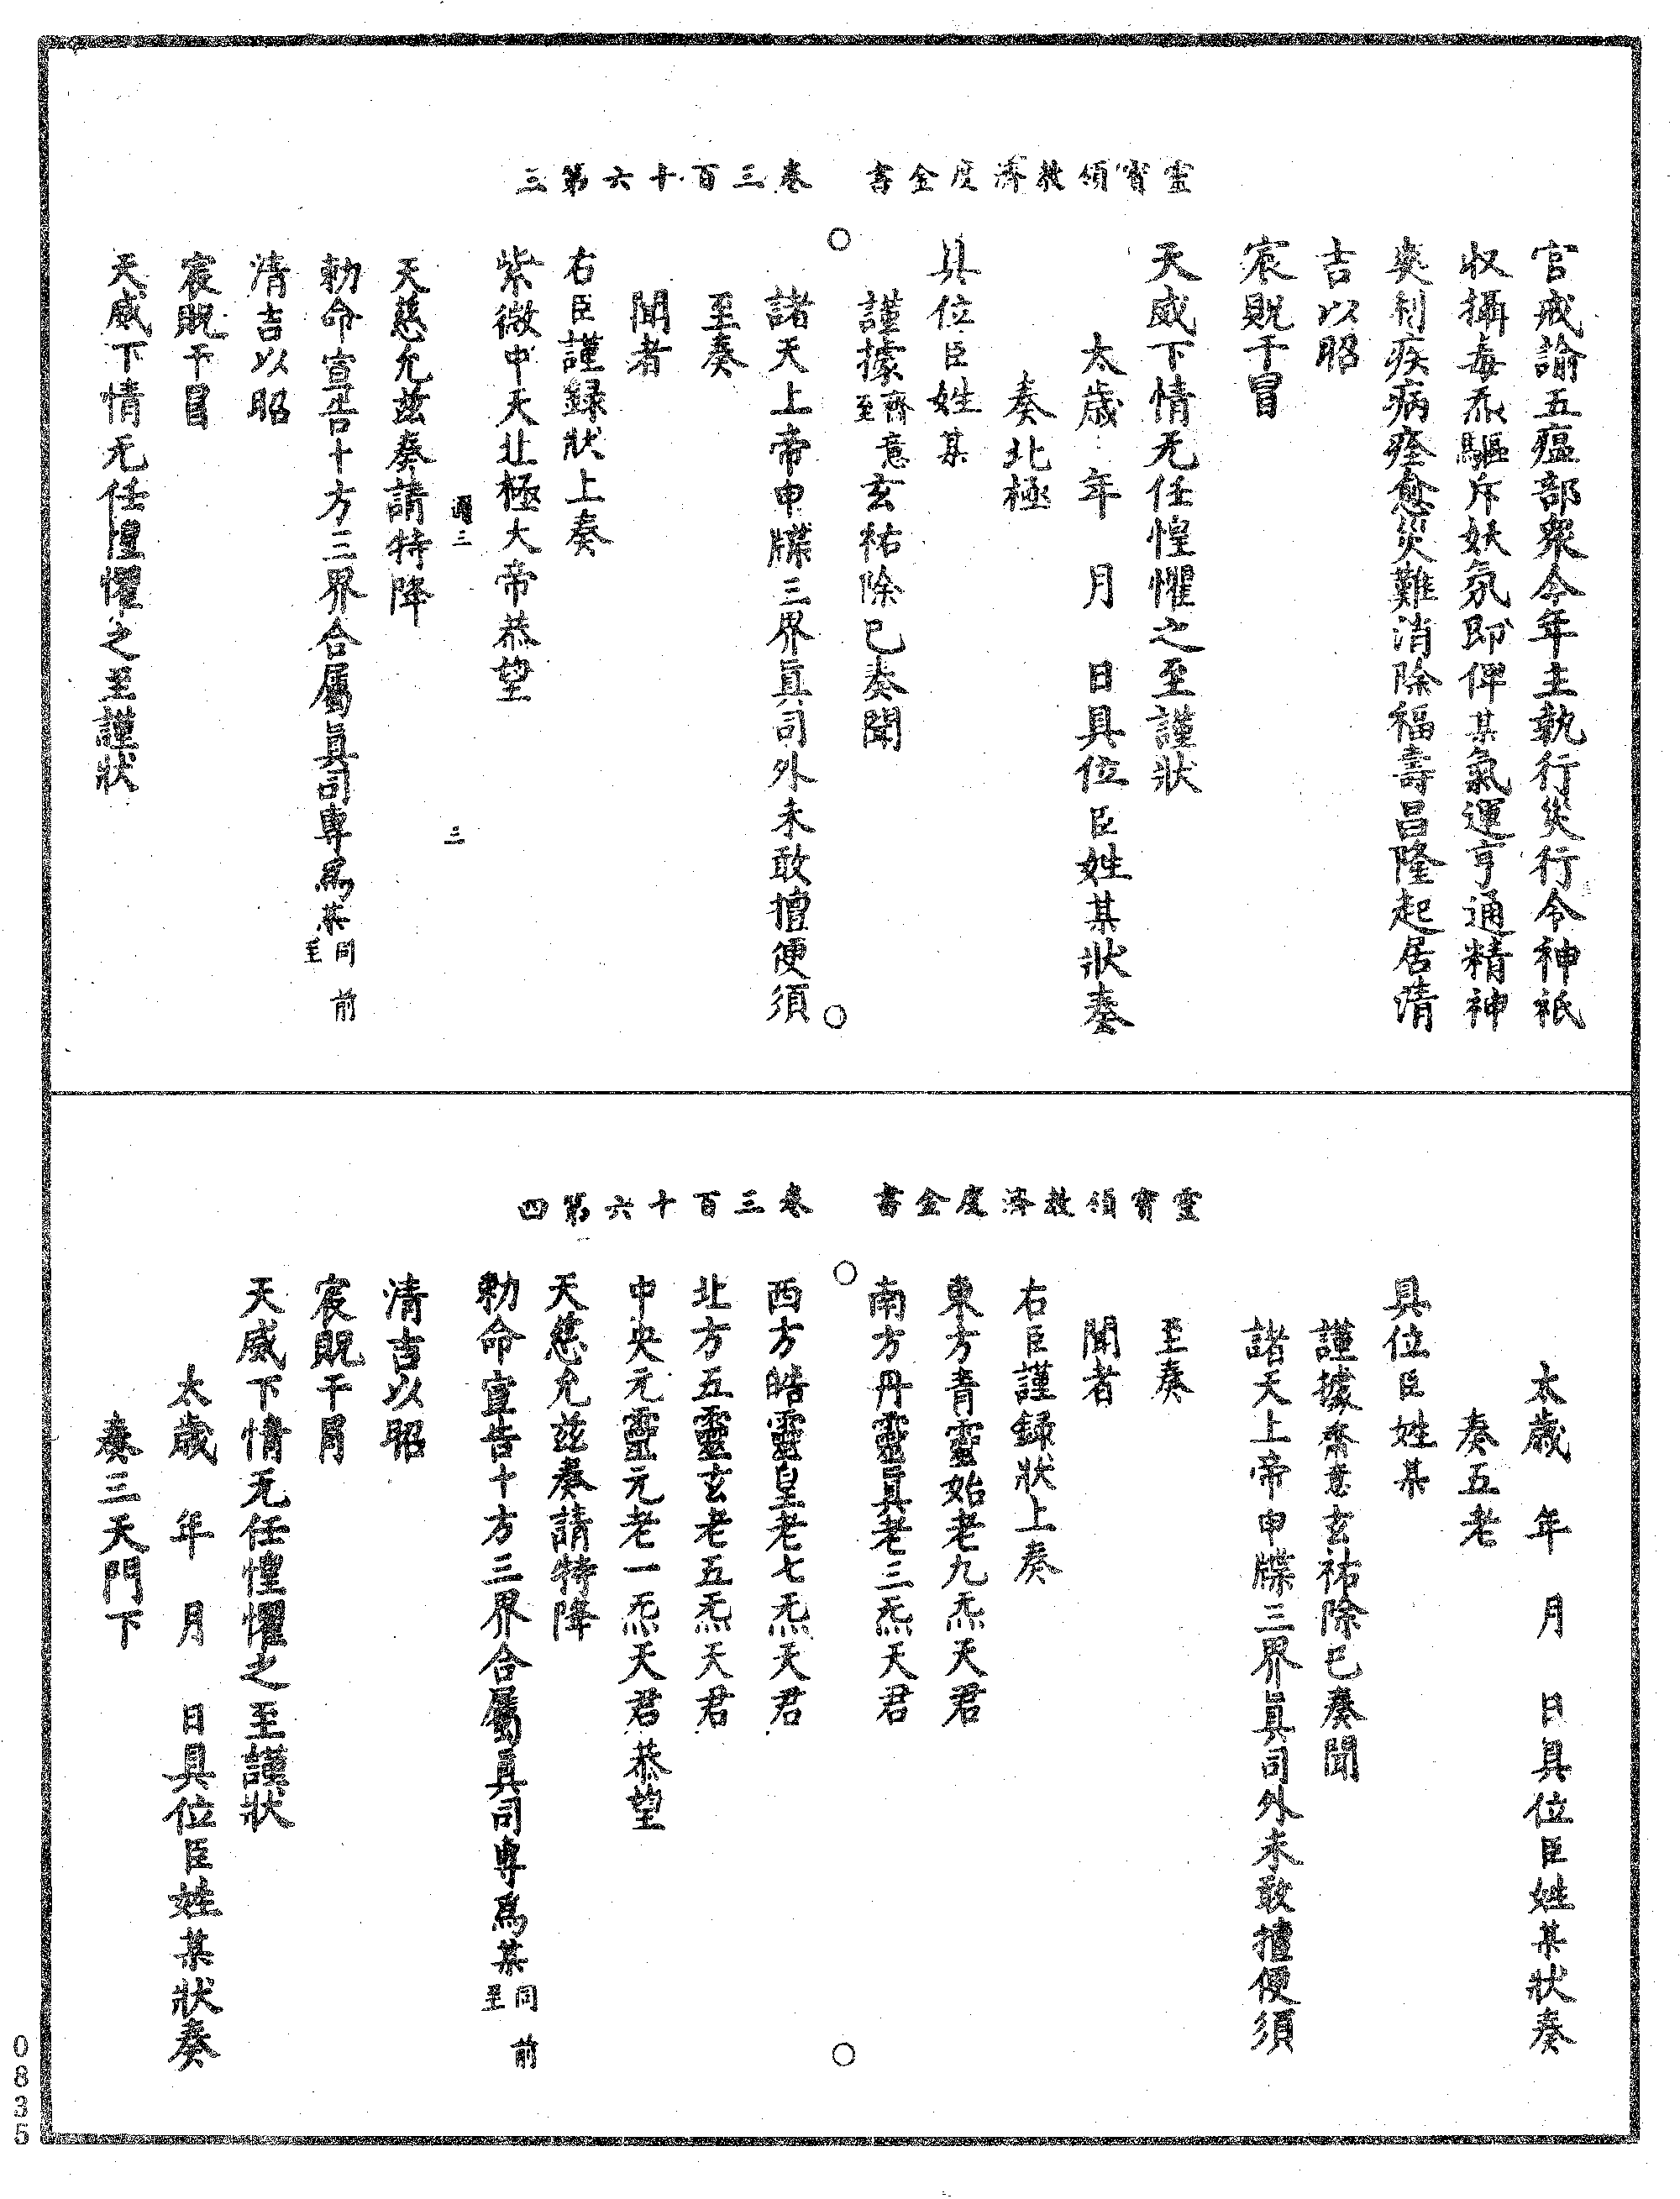 靈寶領教濟度金書　卷三百十六第三
官戒諭五瘟部衆今年主執行災行令神祇
收攝毒炁驅斥妖氛即俾某氣運亨通精神
爽利疾病痊愈災難消除福壽昌隆起居清
吉以昭
宸貺干冒
天威下情无任惶懼之至謹狀
太歲　年　月　日具位臣姓某狀奏
奏北極
具位臣姓某
謹據齊意至玄祐除已奏聞
諸天上帝申牒三界眞司外未敢擅便須
至奏
聞者
右臣謹録狀上奏
紫微中天北極大帝恭望
三　三
天慈允兹奏請特降
勑命宣告十方三界合屬眞司專爲某同前至
清吉以昭
宸貺干冒
天威下情无任惶懼之至謹狀
靈寶領教濟度金書　卷三百十六第四
太歲　年　月　日具位臣姓某狀奏
奏五老
具位臣姓某
謹據齊意玄祐除已奏聞
諸天上帝申牒三界眞司外未敢擅便須
至奏
聞者
右臣謹録狀上奏
東方青靈始老九炁天君
南方丹靈眞老三炁天君
西方皓靈皇老七炁天君
北方五靈玄老五炁天君
中央元靈元老一炁天君恭望
天慈允兹奏請特降
勑命宣告十方三界合屬眞司專爲某同前至
清吉以昭
宸貺干冒
天威下情无任惶懼之至謹狀
太歲　年　月　日具位臣姓某狀奏
奏三天門下
0835